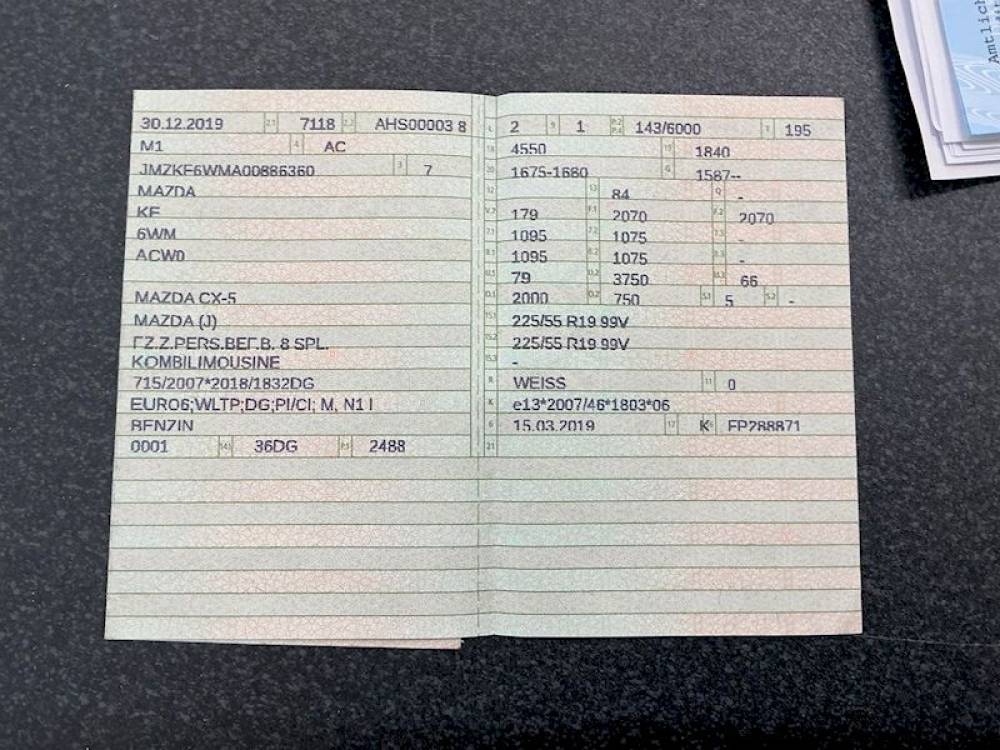 30.12.2019 2.1 7118 2.2 AHS00003 8
M1 4 AC
JMZKF6WMA00886360 3 7
MAZDA
KF
6WM
ACW0
MAZDA CX-5
MAZDA (J)
FZ.Z.PERS.BEF.B. 8 SPL.
KOMBILIMOUSINE
715/2007*2018/1832DG
EURO6;WLTP;DG;PI/CI; M, N1 I
BENZIN
0001 14.1 36DG P.1 2488
L 2 9 1 P.2 P.4 143/6000 T 195
18 4550 19 1840
20 1675-1680 G 1587--
12 13 84 Q -
V.7 179 F.1 2070 F.2 2070
7.1 1095 7.2 1075 7.3 -
8.1 1095 8.2 1075 8.3 -
U.1 79 U.2 3750 U.3 66
O.1 2000 O.2 750 S.1 5 S.2 -
15.1 225/55 R19 99V
15.2 225/55 R19 99V
15.3 -
R WEISS 11 0
K e13*2007/46*1803*06
6 15.03.2019 17 K 16 FP288871
21
Amtlich